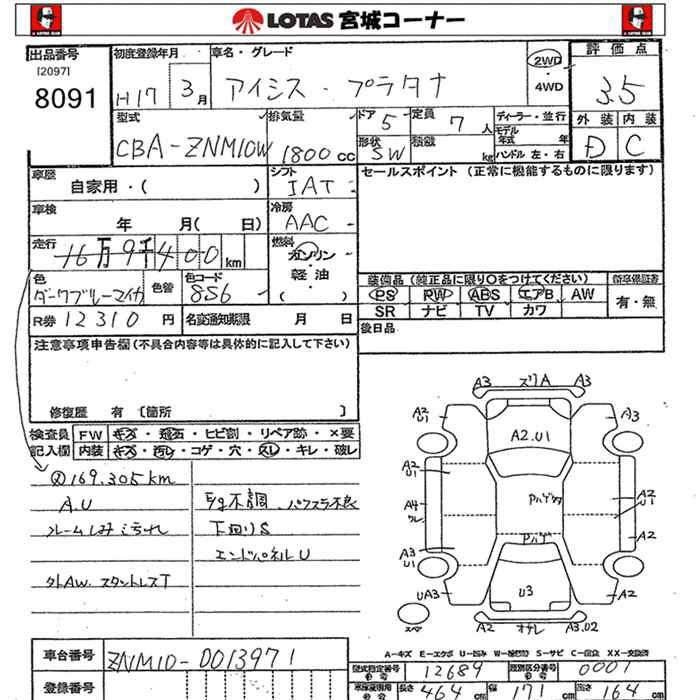 LOTAS 宮城コーナー
出品番号 初度登録年月 車名・グレード 評価点
[2097]
8091 H17 3月 アイシス・プラタナ 2WD・4WD 3.5
型式 排気量 ドア 定員 ディーラー・並行 外装 内装
CBA-ZNM10W 1800cc 5 7人 モデル年式 年 D C
形状 SW 積載 kg ハンドル 左・右
車歴 自家用・( ) シフト IAT セールスポイント (正常に機能するものに限ります)
車検 年 月( 日) 冷房 AAC
走行 16万9千400km 燃料 ガソリン・軽油・( )
色 ダークブルーマイカ 色替 色コード 8S6
装備品 (純正品に限り○をつけてください) 新車保証書
PS RW ABS エアB AW 有・無
SR ナビ TV カワ
R券 12310円 名変通知期限 月 日 後日品
注意事項申告欄 (不具合内容等は具体的に記入して下さい)
修復歴 有 [箇所 ]
検査員 FW キズ・飛石・ヒビ割・リペア跡・×要
記入欄 内装 キズ・汚れ・コゲ・穴・スレ・キレ・破レ
169.305km
A.U
フレームしみこられ
外AW.スタットレスT
E/g不調.パワステ不良
下回りS
エンドパネルU
A3 ズリA A3
A2 U1 A3
A2.U1
A2 U1 Pハゲタ A2 U1
A4 ワレ Pハゲ A2
A3 U1
UA3 U3 A2
スペア A2 オチレ A3.U2
A-キズ E-エクボ U-凹み W-補修跡 S-サビ C-腐食 XX-交換済
車台番号 ZNM10-0013971 型式指定番号 12689 類別区分番号 0001
登録番号 長さ 464cm 幅 171cm 高さ 164cm